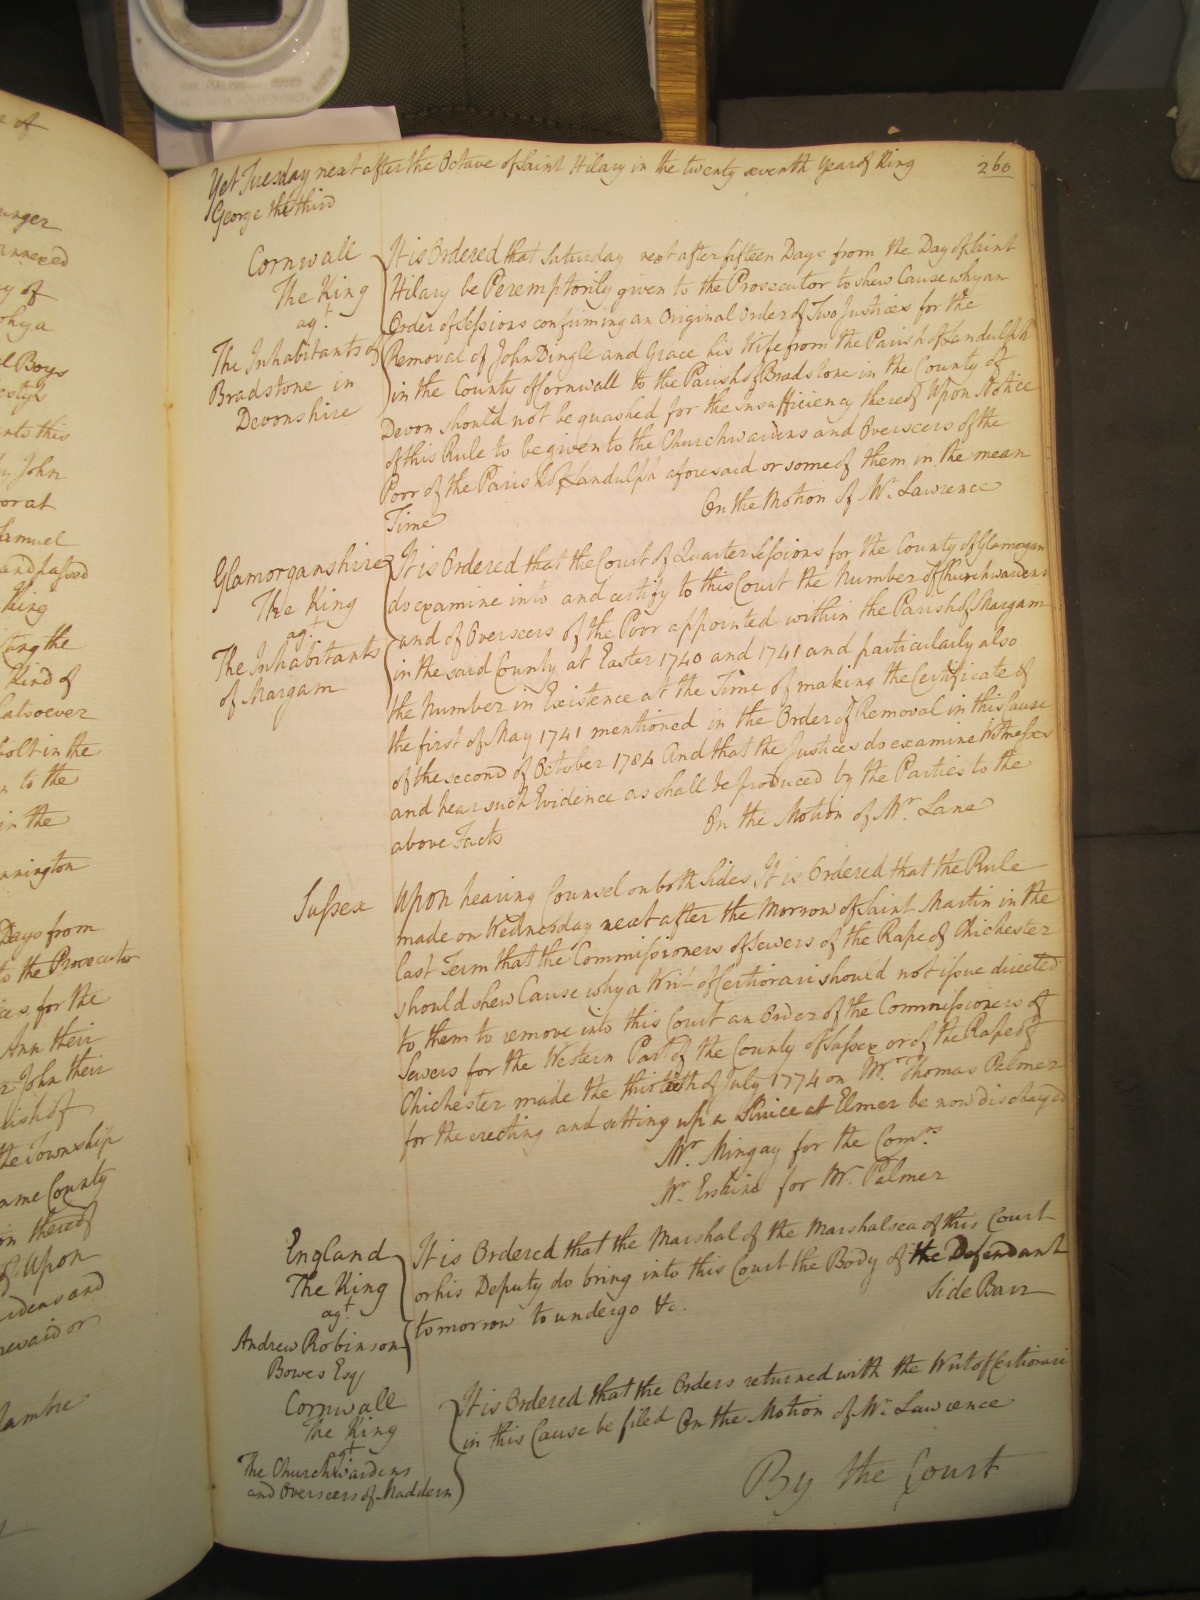 e of
unger
annexed
y of
ohya
el Boys
estyls
ants this
n John
or at
Samuel
and passed
King
cting the
Kind of
hatsoever
bolt in the
n to the
in the
nnington
Days from
to the Prosecutor
ices for the
Ann their
r John their
arish of
the Township
ame County
on thereof
of Upon
wardens and
foresaid or
Lambre
Yet Tuesday next after the Octave of Saint Hilary in the twenty seventh Year of King
260
George the third
Cornwall
The King
agt.
The Inhabitants of
Bradstone in
Devonshire
It is Ordered that Saturday next after fifteen Days from the Day of Saint
Hilary be Peremptorily given to the Prosecutor to shew Cause why an
Order of Sessions confirming an Original Order of Two Justices for the
Removal of John Dingle and Grace his Wife from the Parish of Landulph
in the County of Cornwall to the Parish of Bradstone in the County of
Devon should not be quashed for the Insufficiency thereof Upon Notice
of this Rule to be given to the Churchwardens and Overseers of the
Poor of the Parish of Landulph aforesaid or some of them in the mean
Time
On the Motion of Mr. Lawrence
Glamorganshire
The King
agt
The Inhabitants
of Margam
It is Ordered that the Court of Quarter Sessions for the County of Glamorgan
do examine into and certify to this Court the Number of Churchwardens
and of Overseers of the Poor appointed within the Parish of Margam
in the said County at Easter 1740 and 1741 and particularly also
the Number in Existence at the Time of making the Certificate of
the first of May 1741 mentioned in the Order of Removal in this Cause
of the second of October 1784 And that the Justices do examine Witnesses
and hear such Evidence as shall be produced by the Parties to the
above Facts
On the Motion of Mr. Lane
Sussex
Upon hearing Counsel on both Sides It is Ordered that the Rule
made on Wednesday next after the Morrow of Saint Martin in the
last Term that the Commissioners of Sewers of the Rape of Chichester
should shew Cause why a Writ of Certiorari should not issue directed
to them to remove into this Court an Order of the Commissioners of
Sewers for the Western Part of the County of Sussex or of the Rape of
Chichester made the thirtieth of July 1774 on Mr. Thomas Palmer
for the erecting and setting up a Sluice at Elmer be now discharged
Mr. Mingay for the Comrs.
Mr. Erskine for Mr. Palmer
England
The King
agt.
Andrew Robinson
Bowes Esq
It is Ordered that the Marshal of the Marshalsea of this Court
or his Deputy do bring into this Court the Body of the Defendant
tomorrow to undergo &c.
Side Barr
Cornwall
The King
agt
The Churchwardens
and Overseers of Maddern
It is Ordered that the Orders returned with the Writ of Certiorari
in this Cause be filed On the Motion of Mr. Lawrence
By the Court